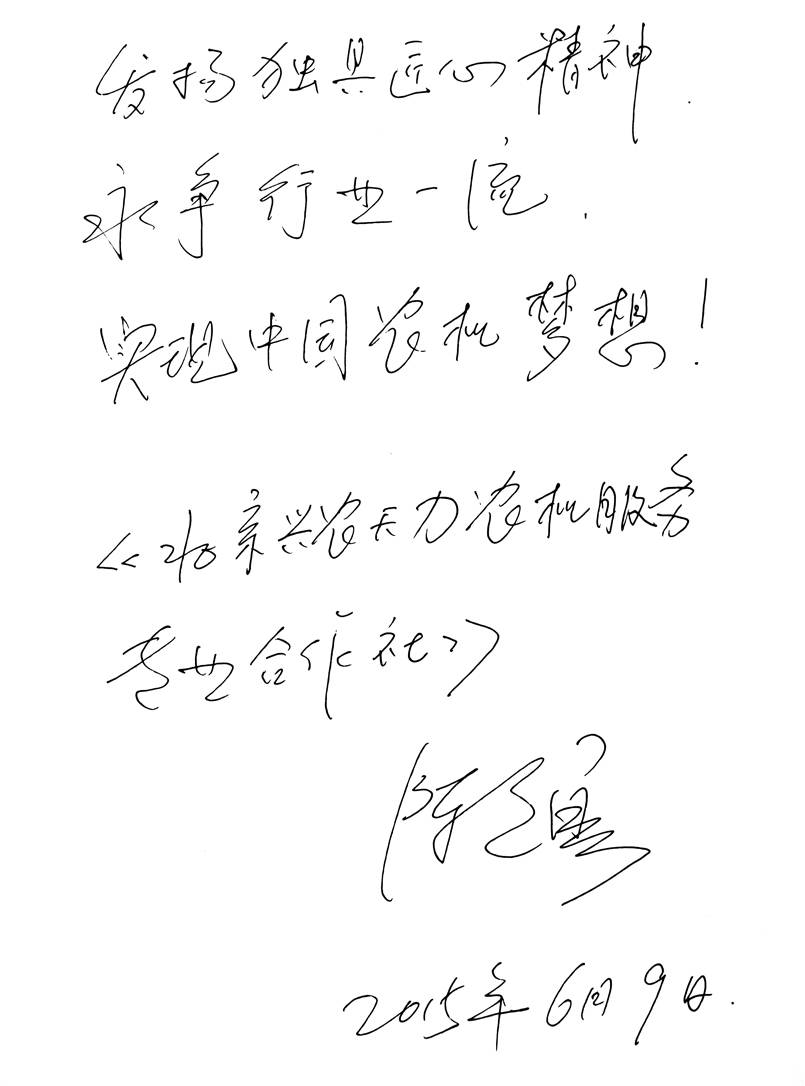 发扬独具匠心精神.
永争行业一流.
实现中国农机梦想!
《北京兴农天力农机服务
专业合作社》
陈
2015年6月9日.